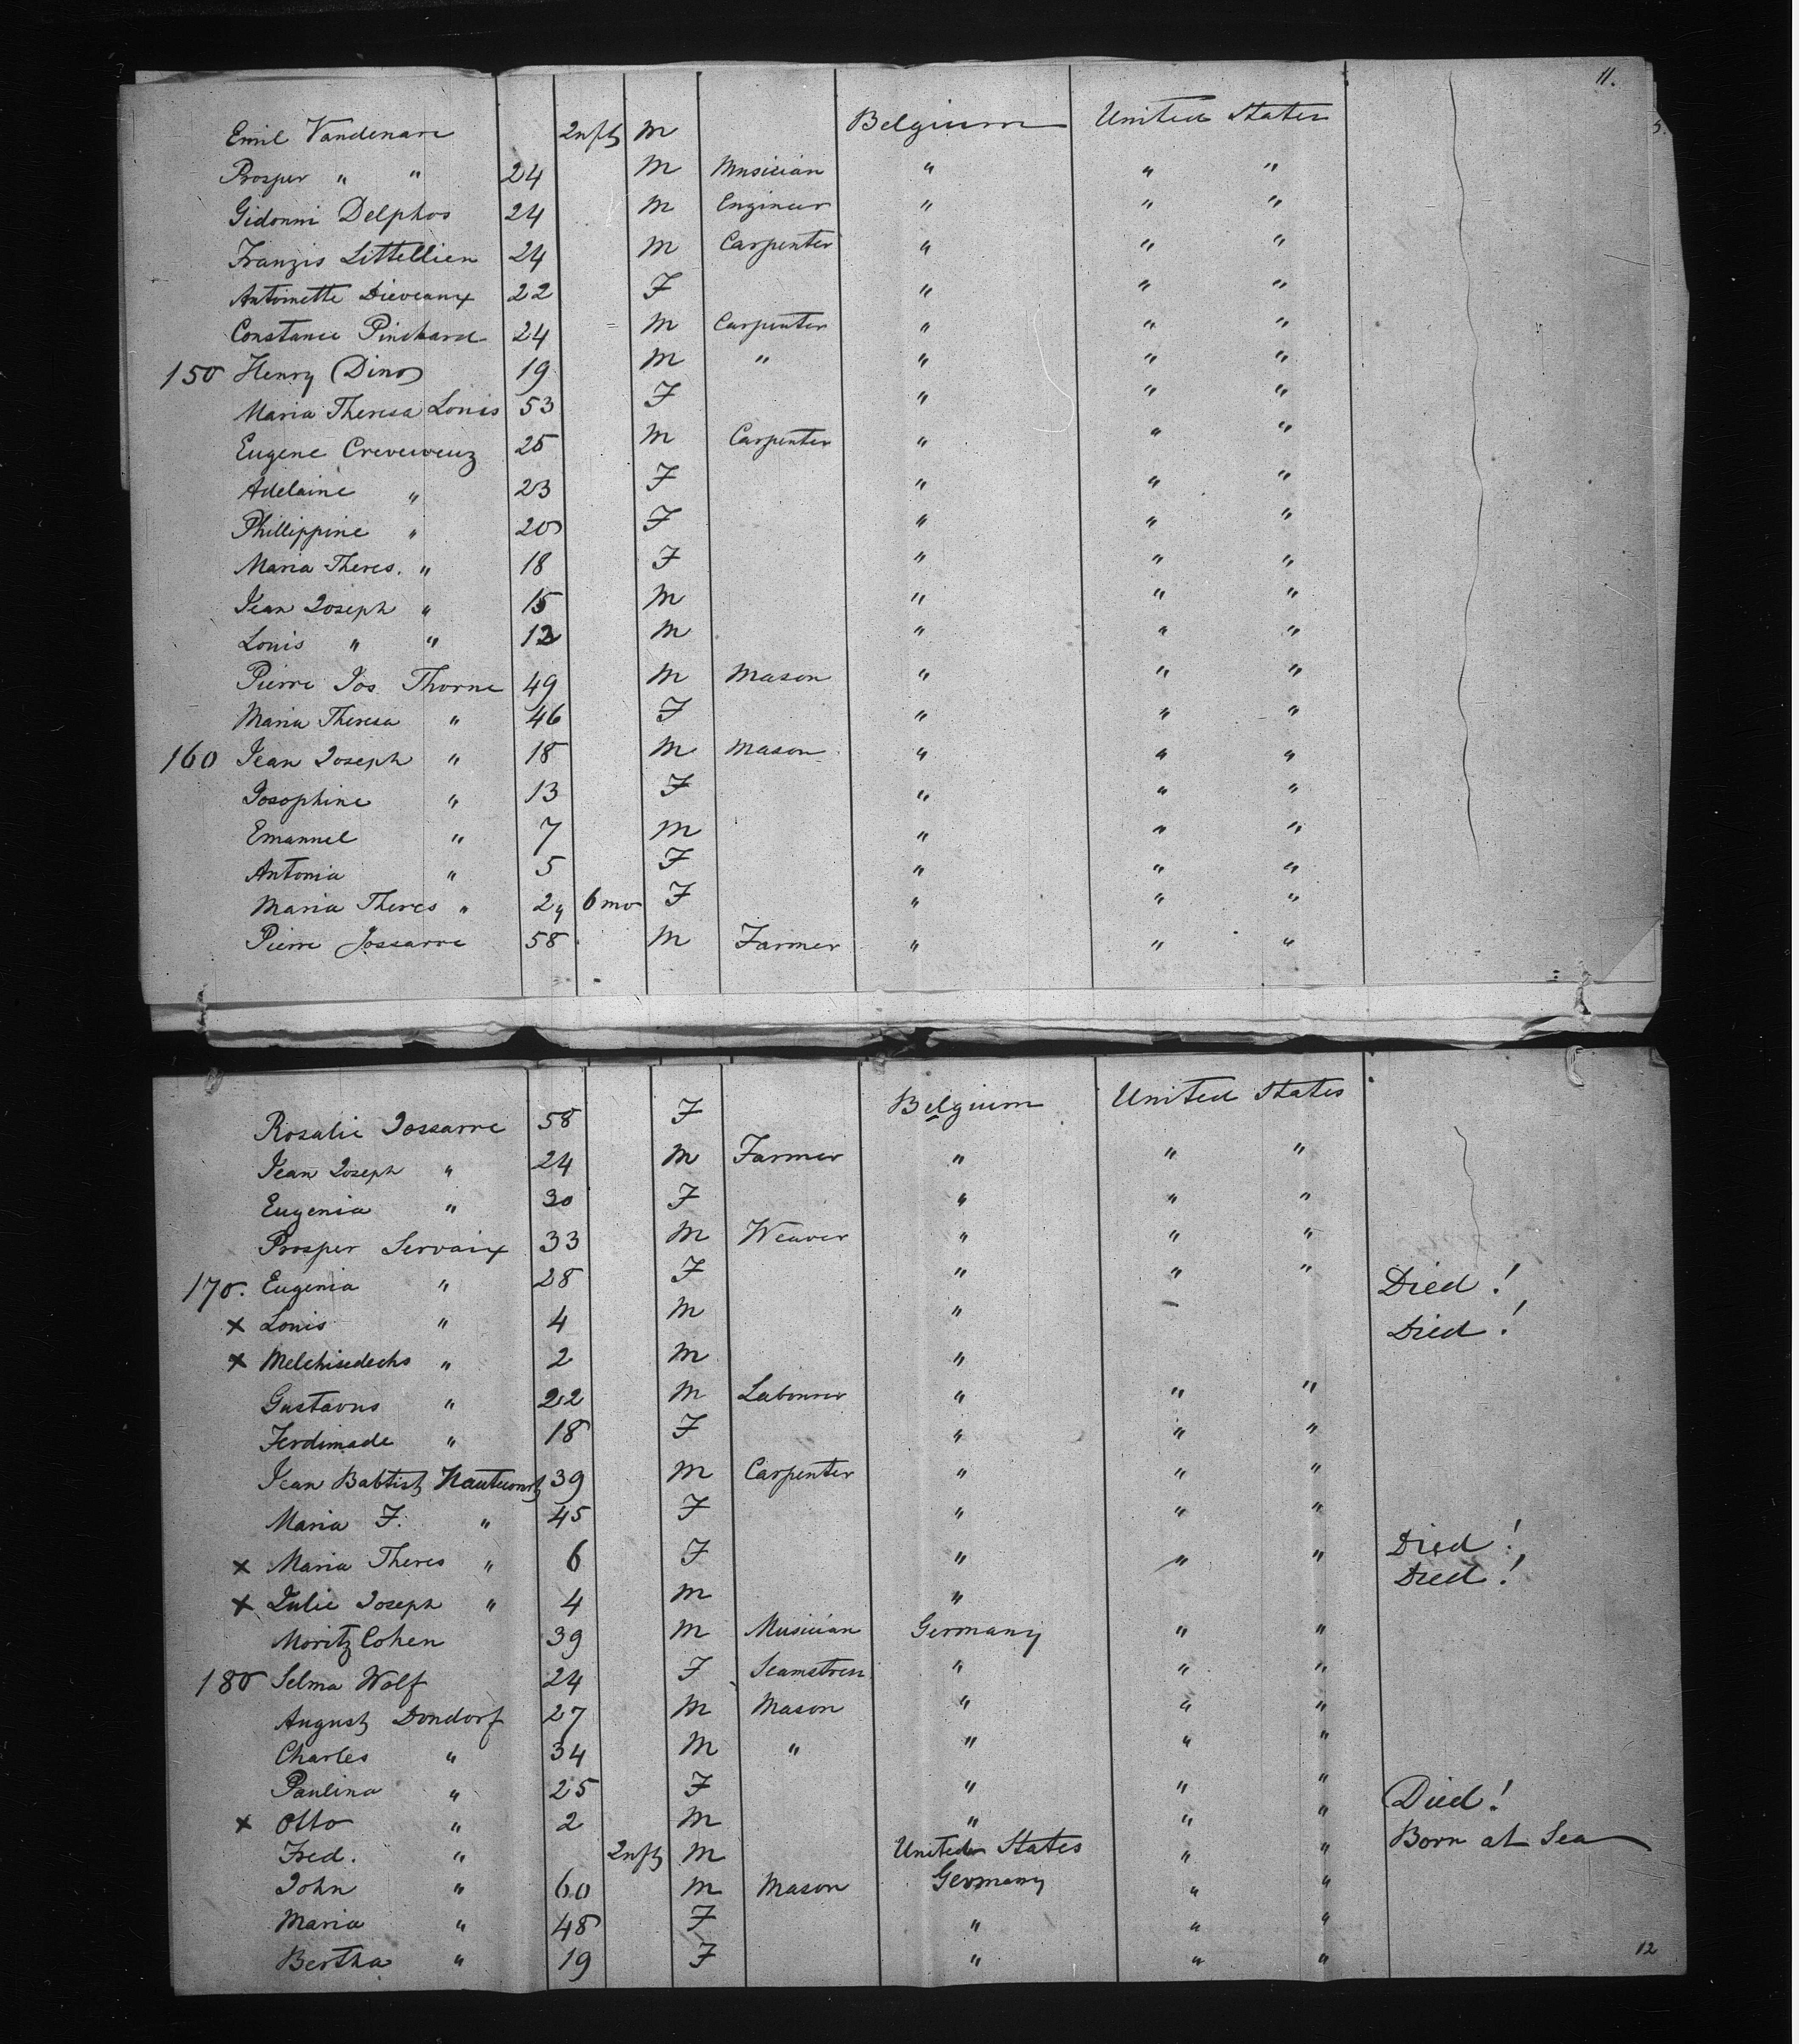 11.
Emil Vandenare 2nft M Belgium United States
Prosper " " 24 M Musician " " "
Gidonni Delphos 24 M Engineer " " "
Franzis Littellien 24 M Carpenter " " "
Antoinette Dieveaux 22 F " " "
Constance Pinchard 24 M Carpenter " " "
150 Henry Dino 19 M " " " "
Maria Theresa Louis 53 F " " "
Eugene Creveweuz 25 M Carpenter " " "
Adelaine " 23 F " " "
Phillippine " 20 F " " "
Maria Theres. " 18 F " " "
Jean Joseph " 15 M " " "
Louis " " 12 M " " "
Pierre Jos. Thorne 49 M Mason " " "
Maria Theresa " 46 F " " "
160 Jean Joseph " 18 M Mason " " "
Josophine " 13 F " " "
Emanuel " 7 M " " "
Antonia " 5 F " " "
Maria Theres " 2 6 mo F " " "
Pierre Jossarre 58 M Farmer " " "
Rosalie Jossarre 58 F Belgium United States
Jean Joseph " 24 M Farmer " " "
Eugenia " 30 F " " "
Prosper Servaix 33 M Weaver " " "
170. Eugenia " 28 F " " "
x Louis " 4 M " Died!
x Melchisedechs " 2 M " Died!
Gustavus " 22 M Labourer " " "
Ferdinade " 18 F " " "
Jean Babtist Nautwort 39 M Carpenter " " "
Maria F. " 45 F " " "
x Maria Theres " 6 F " " " Died!
x Julie Joseph " 4 M " Died!
Moritz Cohen 39 M Musician Germany " "
180 Selma Wolf 24 F Seamstress " " "
August Dondorf 27 M Mason " " "
Charles " 34 M " " " "
Paulina " 25 F " " "
x Otto " 2 M " " " Died!
Fred. " 2nft M United States " " Born at Sea
John " 60 M Mason Germany " "
Maria " 48 F " " "
Bertha " 19 F " " "
12